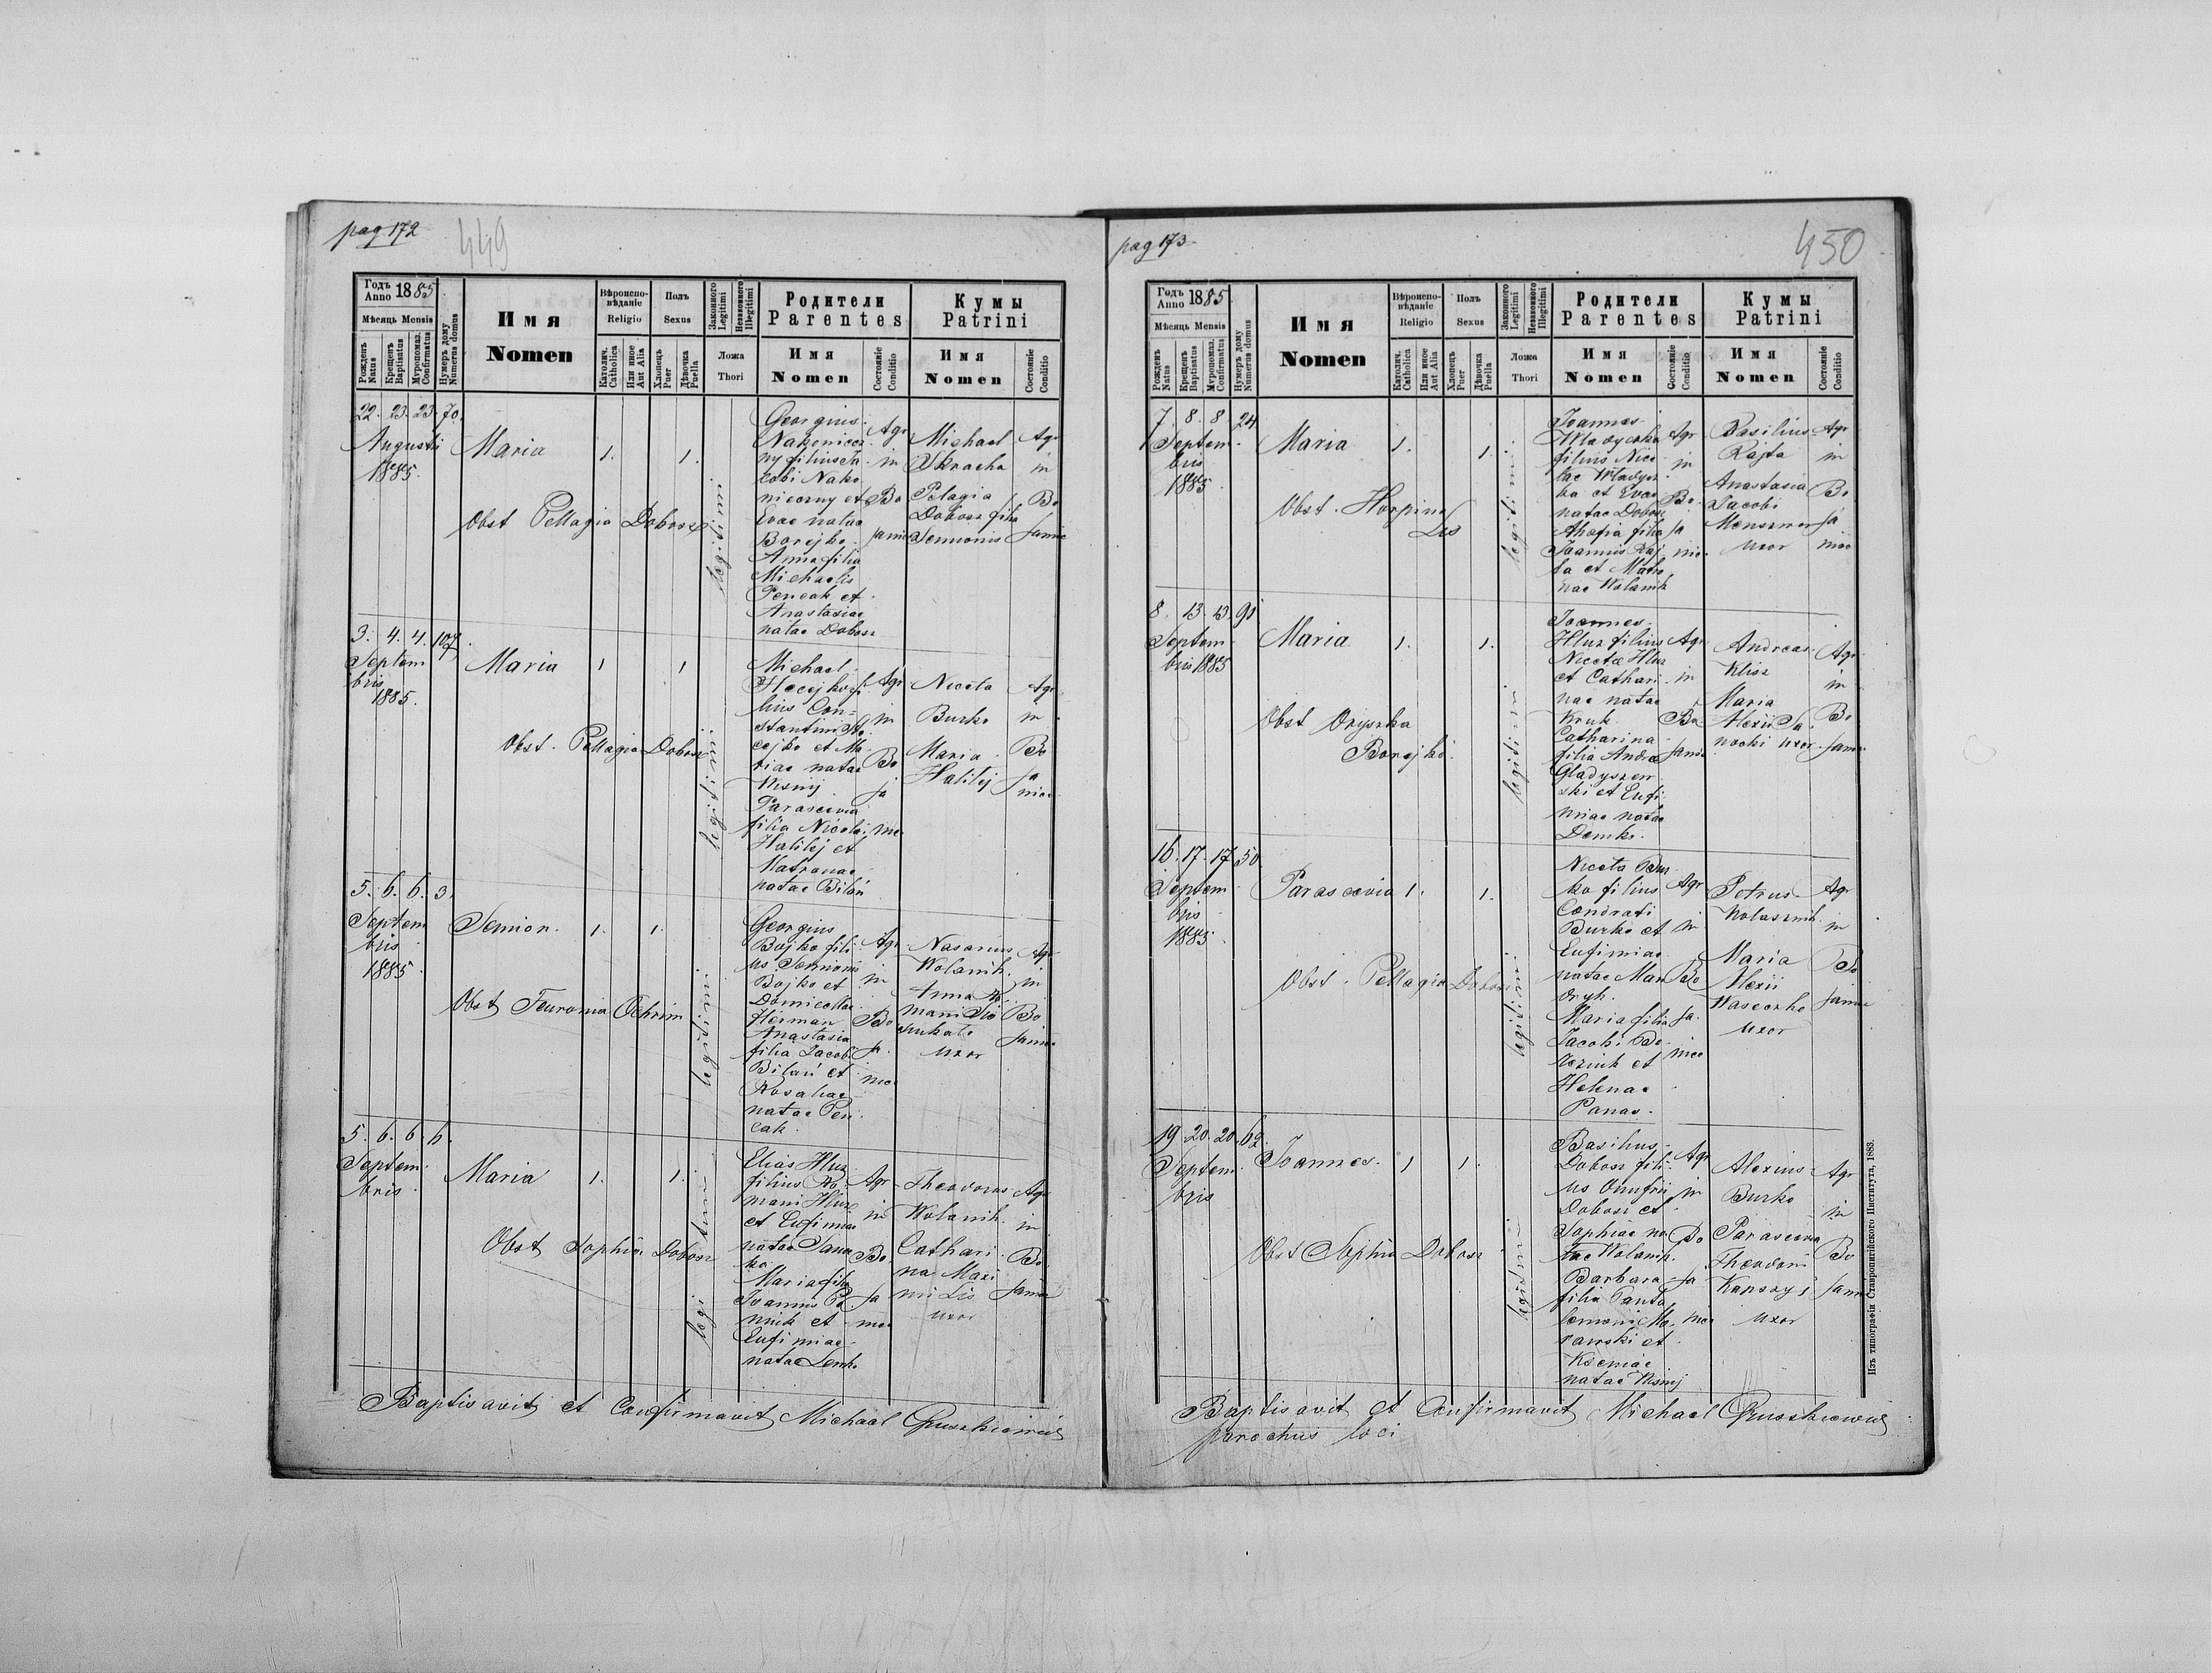 pag 172
449
Годъ Anno 1885.
Мѣсяцъ Mensis
Рожденъ Natus
Крещенъ Baptisatus
Мѵропомаз. Confirmatus
Нумеръ дому Numerus domus
Имя
Nomen
Вѣроиспо-
вѣданіе
Religio
Католич. Catholica
Или иное Aut Alia
Полъ
Sexus
Хлопецъ Puer
Дѣвочка Puella
Законного Legitimi
Незаконного Illegitimi
Ложа
Thori
Родители
Parentes
Имя
Nomen
Состояніе Conditio
Кумы
Patrini
Имя
Nomen
Состояніе Conditio
22. 23. 23. 70.
Augusti
1885.
Maria
1. 1.
Obst Pellagia Dobosz
legitimi
Georgius
Nakonicz
ny filius Ja
cobi Nako
niczny et
Evae natae
Borejko
Anna filia
Michaelis
Pencak et
Anastasiae
natae Dobosz
Agr
in
Bo
janie
Michael
Skracha
Pelagia
Dobosz filia
Semionis
Agr
in
Bo
janie
3. 4. 4. 107
Septem
bris
1885.
Maria
1 1
Obst. Pellagia Dobosz
legitimi
Michael
Hecejko fi
lius Con=
stantini He
cejko et Ma
riae natae
Wisnij
Parascevia
filia Nicolai
Halilej et
Matronae
natae Bilań
Agr
in
Bo
ja
nie
Niceta
Burko
Maria
Halilej
Agr
in
Bo
ja
nice
5. 6. 6. 3.
Septem
bris
1885.
Semion.
1. 1.
Obst Feuronia Ochrim
legitimi
Georgius
Bojko fili
us Semionis
Bojko et
Domicellae
Herman
Anastasia
filia Jacobi
Bilań et
Rosaliae
natae Pen
cak.
Agr
in
Bo
ja
nice
Nasarius
Wolanik.
Anna Ro
mani
uxor
Agr
in
Bo
janie
5. 6. 6. 6.
Septem.
bris.
Maria
1. 1.
Obst Sophia Dobosz
legitimi
Elias Hluz
filius Ro
mani Hluz
et Eufimiae
natae
Maria filia
Joannis
et
Eufimiae
natae Senk
Agr
in
Bo
ja
nice
Theodorus
Wolanik.
Cathari
na Maxi
mi Lis
uxor
Agr
in
Bo
janie
Baptisavit et Confirmavit Michael Gruszkiewicz
pag 173
450
Годъ Anno 1885.
Мѣсяцъ Mensis
Рожденъ Natus
Крещенъ Baptisatus
Мѵропомаз. Confirmatus
Нумеръ дому Numerus domus
Имя
Nomen
Вѣроиспо-
вѣданіе
Religio
Католич. Catholica
Или иное Aut Alia
Полъ
Sexus
Хлопецъ Puer
Дѣвочка Puella
Законного Legitimi
Незаконного Illegitimi
Ложа
Thori
Родители
Parentes
Имя
Nomen
Состояніе Conditio
Кумы
Patrini
Имя
Nomen
Состояніе Conditio
7. 8. 8 24
Septem.
bris
1885.
Maria
1. 1.
Obst. Horpina
Lis
legitimi
Joannes
Wladyczka
filius Nice
tae Wladycz
ka et Evae
natae Dobosz
filia
Joannis Raj
ta et Matro
nae Wolanik
Agr
in
Bo
ja
nie
Basilius
Rajta
Anastasia
Jacobi
uxor
Agr
in
Bo
ja
nice
8. 13. 13. 91
Septem
bris 1885
Maria
1. 1.
Obst Oryszka
Borejko
legitimi
Joannes
Hluz filius
Nicetae Hluz
et Cathari
nae natae
Kruk.
Catharina
filia Andreae
Gladyszew
ski et Eufi
miae natae
Demko.
Agr
in
Bo
janie
Andreas
Klisz
Maria
Alexii Sa
nocki uxor
Agr
in
Bo
janie
16. 17. 17. 50.
Septem
bris
1885.
Parascevia
1. 1.
Obst. Pellagia Dobosz
legitimi
Niceta Bur
ko filius
Condrati
Burko et
Eufimiae
natae Man
dryk.
Maria filia
Jacobi
et
Helenae
Panas.
Agr
in
Bo
ja
nice
Petrus
Maria
Alexii
Waseczko
uxor
Agr
in
Bo
janie
19. 20. 20. 62.
Septem.
bris
Joannes.
1 1.
Obst Sophia Dobosz
legitimi
Basilius
Dobosz fili
us Onufrii
Dobosz et
Sophiae na
tae Wolanik.
Barbara
filia Panta
lemonis
et
Kseniae
natae Wisnij
Agr
in
Bo
ja
nice
Alexius
Burko
Parascevia
Theodori
uxor
Agr
in
Bo
janie
Baptisavit et Confirmavit Michael Gruszkiewicz
parochus loci
Изъ типографіи Ставропигійского Института, 1883.